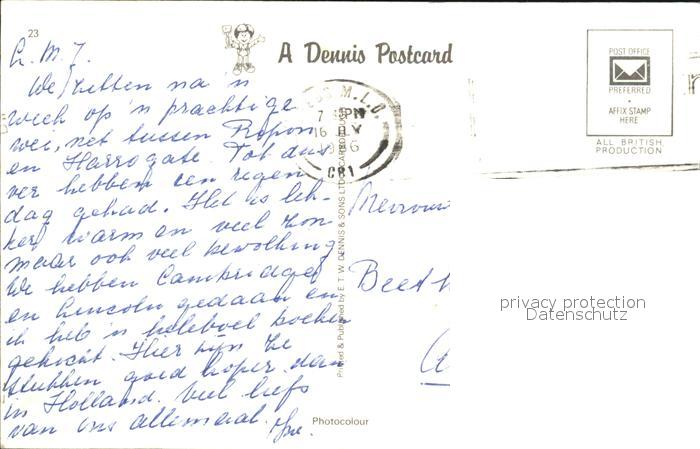 23
L. M. T.
We hebben na 'n
week op 'n prachtige
wei, net tussen Ripon
en Harrogate. Tot dus
ver hebben een regen
dag gehad. Het is lek-
ker warm en veel zon
maar ook veel bewolking
We hebben Cambridge
en Lincoln gedaan en
ik heb 'n heleboel boeken
gekocht. Hier zijn ze
stukken goed koper dan
in Holland. Veel liefs
van ons allemaal.
A Dennis Postcard
POST OFFICE
PREFERRED
AFFIX STAMP
HERE
ALL BRITISH
PRODUCTION
7 PM
16
Mevrouw
Beeth
Printed & Published by E.T.W. DENNIS & SONS LTD. SCARBOROUGH
privacy protection
Datenschutz
Photocolour